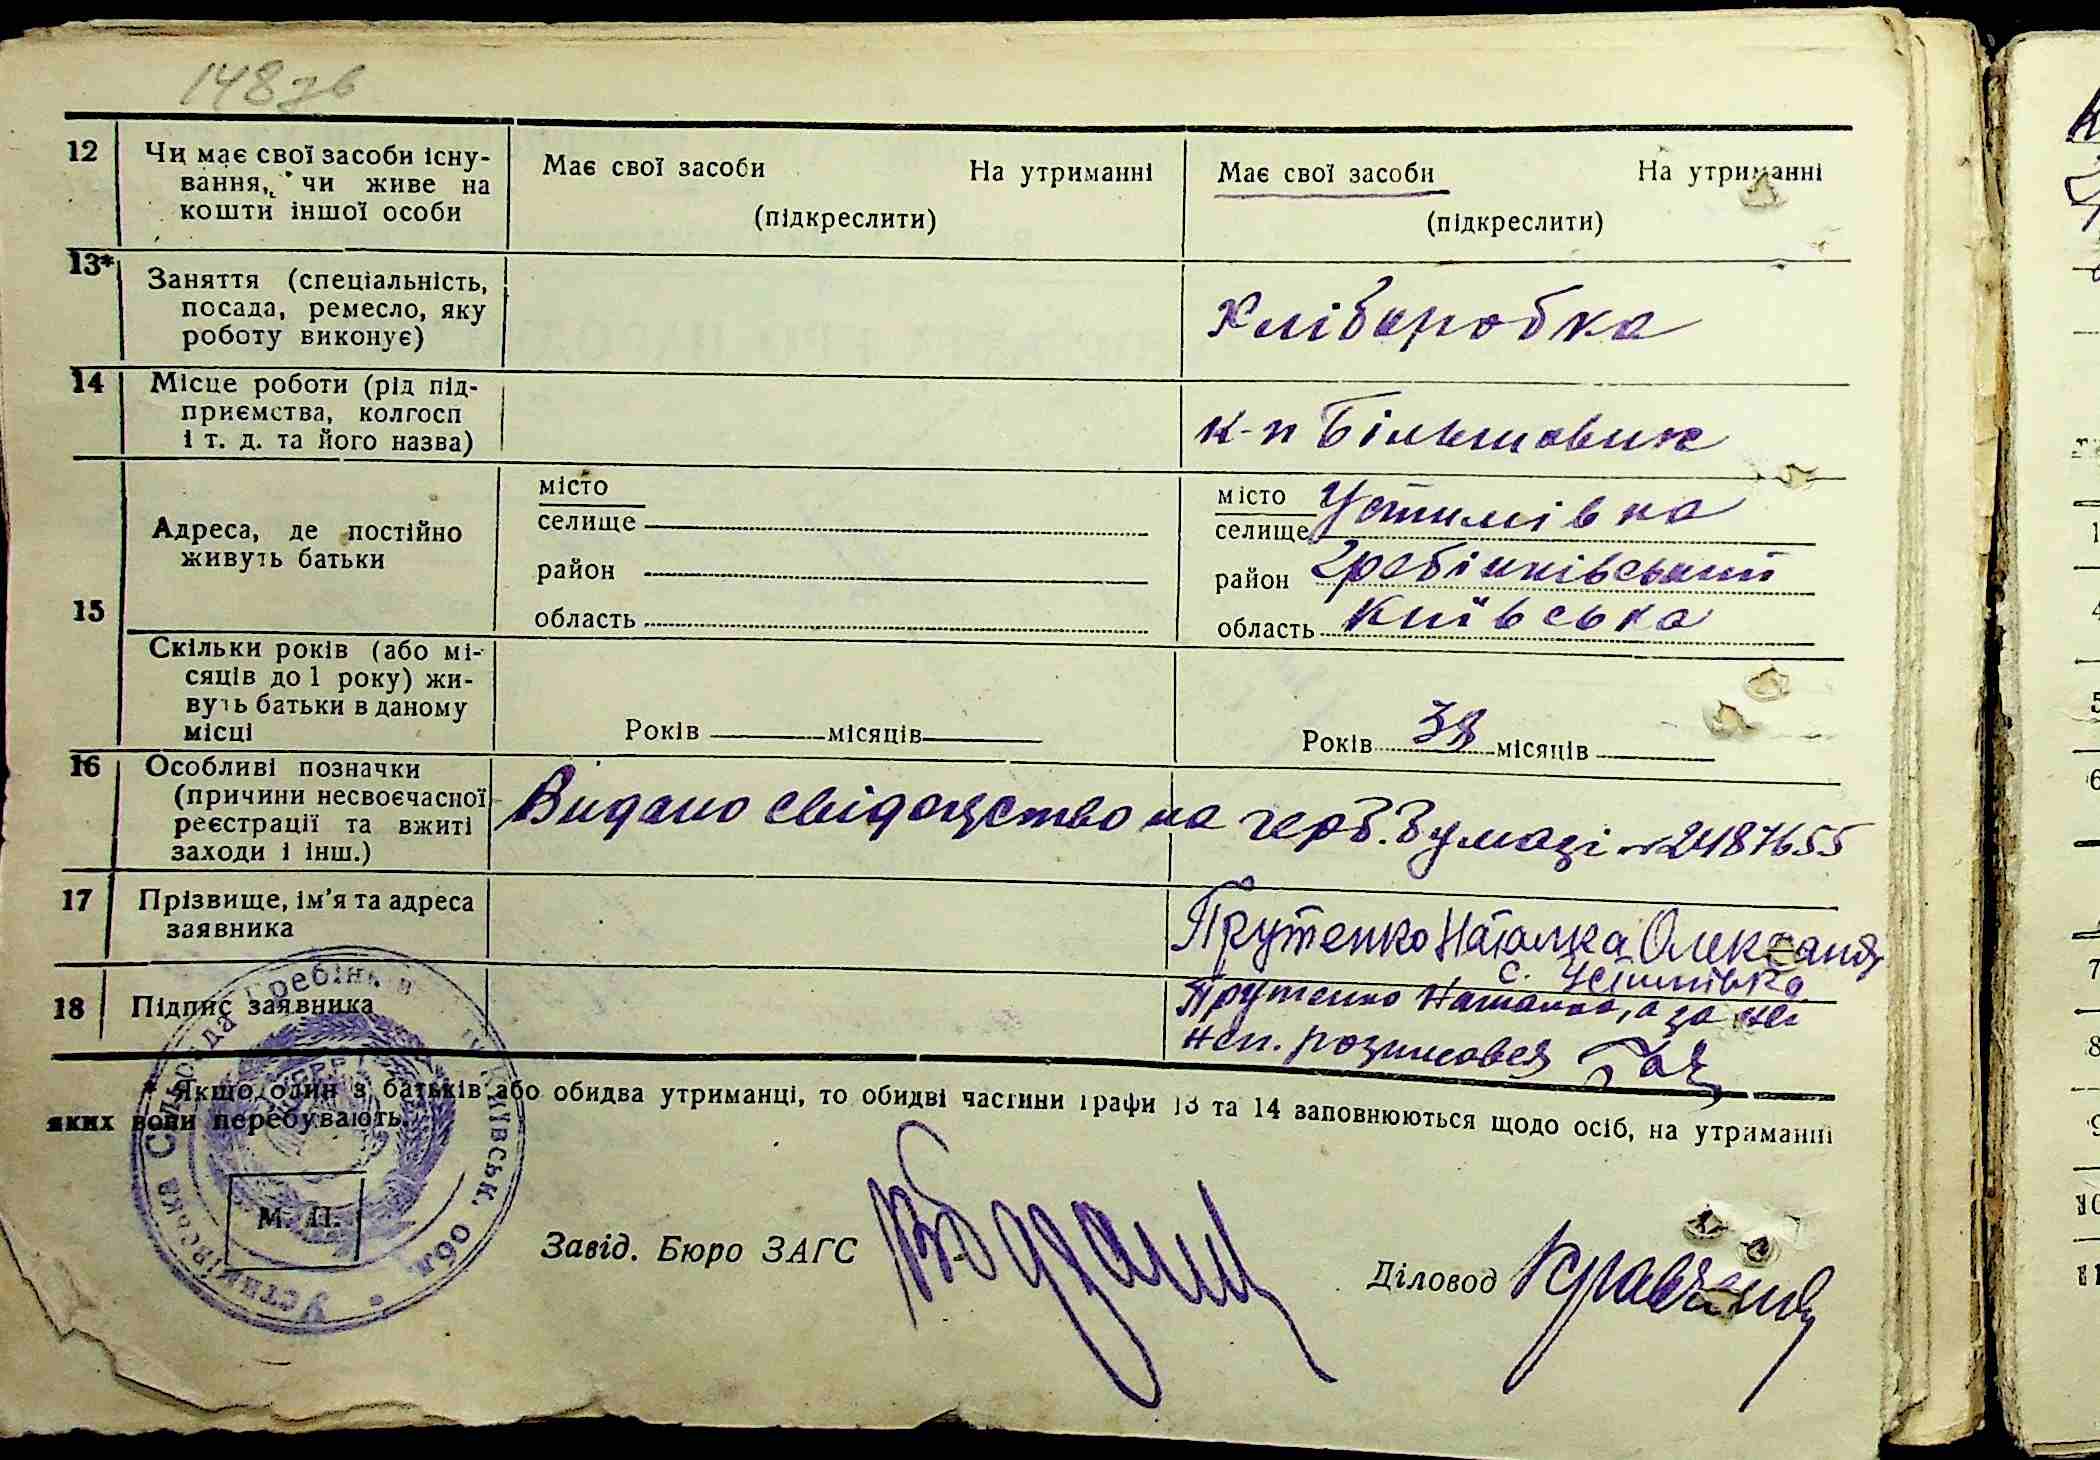 148зв
12 Чи має свої засоби існу-
вання, чи живе на
кошти іншої особи
Має свої засоби На утриманні
(підкреслити)
Має свої засоби На утриманні
(підкреслити)
13* Заняття (спеціальність,
посада, ремесло, яку
роботу виконує)
Хліборобка
14 Місце роботи (рід під-
приємства, колгосп
і т. д. та його назва)
к-п Більшовик
15
Адреса, де постійно
живуть батьки
місто
селище
район
область
місто
селище Устимівка
район Гребінківський
область Київська
Скільки років (або мі-
сяців до 1 року) жи-
вуть батьки в даному
місці
Років місяців
Років 38 місяців
16 Особливі позначки
(причини несвоєчасної
реєстрації та вжиті
заходи і інш.)
Видано свідоцтво на герб. бумазі № 2487655
17 Прізвище, ім'я та адреса
заявника
Прутенко Наталка Олександ
с. Устимівка
18 Підпис заявника
Прутенко Наталка, а за неї
неп. розписався
* Якщо один з батьків або обидва утриманці, то обидві частини графи 13 та 14 заповнюються щодо осіб, на утриманні
яких вони перебувають.
М. П.
Завід. Бюро ЗАГС
Діловод Кравченко